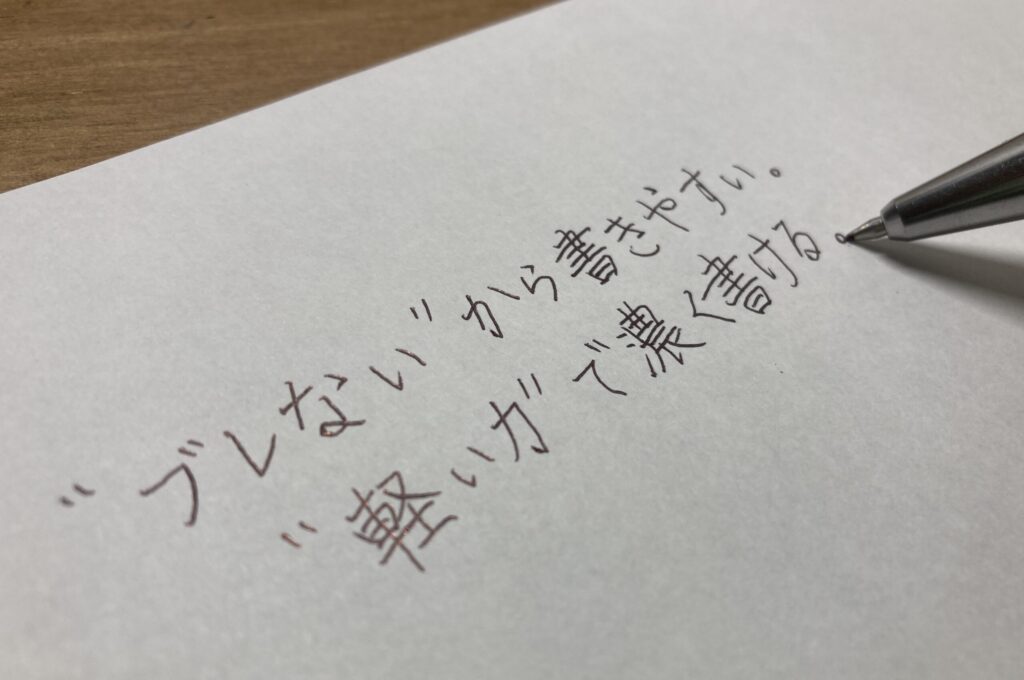 "ブレない"から書きやすい。
"軽い力"で濃く書ける。